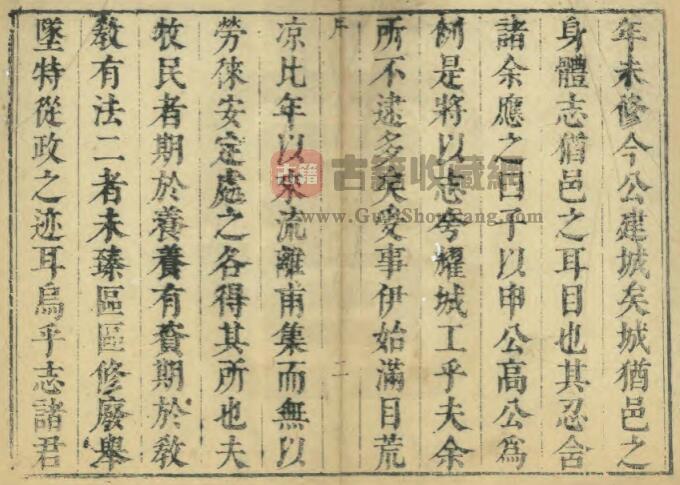 年未修今公建城矣城猶邑之
身體志猶邑之耳目也其忍舍
諸余應之曰子以申公高公為
例是將以志夸耀城工乎夫余
所不逮多矣受事伊始滿目荒
序 二
凉比年以來流離甫集而無以
勞倈安定處之各得其所也夫
牧民者期於養養有賚期於敎
敎有法二者未臻區區修廢舉
墜特從政之迹耳烏乎志諸君
古籍
古籍收藏網
www.GuJiShouCang.com